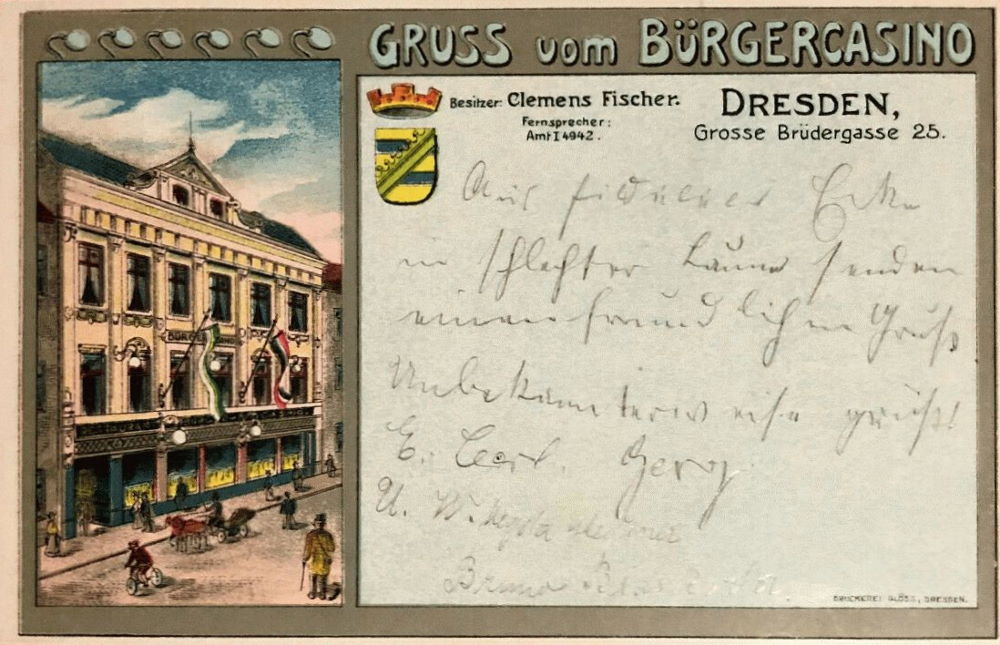 GRUSS vom BÜRGERCASINO
Besitzer: Clemens Fischer.
Fernsprecher:
Amt I 4942.
DRESDEN,
Grosse Brüdergasse 25.
Aus fideler Ecke
in schlechter Laune senden
einen freundlichen Gruß
Unbekannterweise grüßt
E.
U. W.
Bruno
DRUCKEREI GLÖSS, DRESDEN.